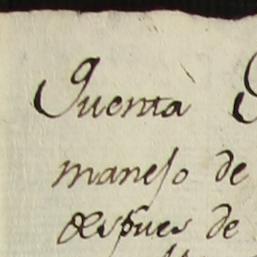 Quenta
manejo de
despues de